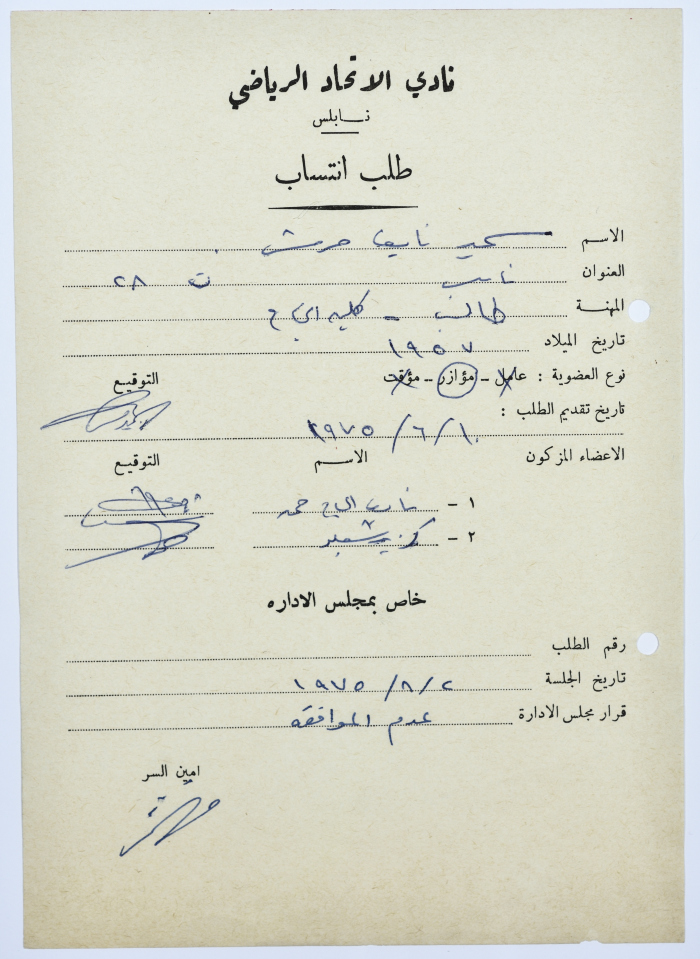 نادي الاتحاد الرياضي
نابلس
طلب انتساب
الاسم سمير نايف
العنوان نابلس ت ٢٨
المهنة طالب - كلية النجاح
تاريخ الميلاد ١٩٥٧
نوع العضوية : عامل - مؤازر - مؤقت التوقيع
تاريخ تقديم الطلب :
١٩٧٥/٦/١٠
الاعضاء المزكون الاسم التوقيع
١ -
٢ -
خاص بمجلس الاداره
رقم الطلب
تاريخ الجلسة ١٩٧٥/٨/٢
قرار مجلس الادارة عدم الموافقه
امين السر